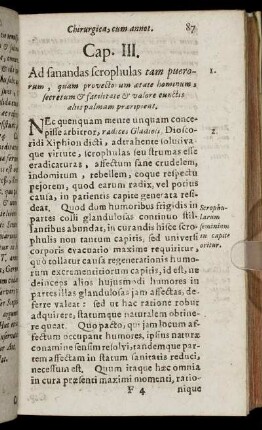 Chirurgica, cum annot. 87
Cap. III.
Ad sanandas scrophulas tam puero-
rum, quam provectæ um ætate hominum,
secretum & facilitate & valore cunctis
aliis palmam præripiens.
1.
NEc quenquam mente unquam conce-
pisse arbitror, radices Gladioli, Diosco-
ridi Xiphion dicti, adtrahente solutiva-
2.
que virtute, scrophulas seu strumas esse
eradicaturas, affectum sane crudelem,
indomitum, rebellem, coque respectu
pejorem, quod earum radix, vel potius
causa, in patientis capite generata resi-
deat. Quod dum humoribus frigidis in
partes colli glandulosas continuo stil-
lantibus abundat, in curandis hisce scro-
phulis non tantum capitis, sed universi
corporis evacuatio maxime requiritur
quo tollatur causa regenerationis humo-
rum excrementitiorum capitis, id est, ne
deinceps alios hujusmodi humores in
partes illas glandulosas jam affectas, de-
ferre valeat: sed ut hac ratione robur
adquirere, statumque naturalem obtine-
re queat. Quo pacto, qui jam locum af-
fectum occupant humores, ipsius naturæ
conamine sensim resolvi, tandemque par-
tem affectam in statum sanitatis reduci,
necessum est. Quum itaque hæc omnia
in cura præsenti maximi momenti, ratio-
F 4 nique
Scrophu-
larum
seminium
in capite
oritur.